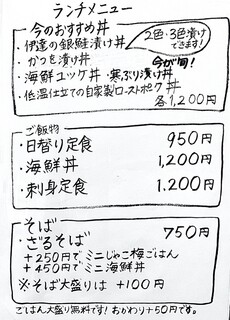 ランチメニュー
今のおすすめ丼
2色・3色漬け
できます!
・伊達の銀鮭漬け丼
・かつを漬け丼
今が旬!
・海鮮ユッケ丼・寒ぶり漬け丼
・低温仕立ての自家製ローストポーク丼
各1,200円
ご飯物
・日替り定食 950円
・海鮮丼 1,200円
・刺身定食 1.200円
そば
・ざるそば 750円
+250円で、ミニじゃこ梅ごはん
+450円でミニ海鮮丼
※そば大盛りは +100円
ごはん大盛り無料です!おかわり+50円です。